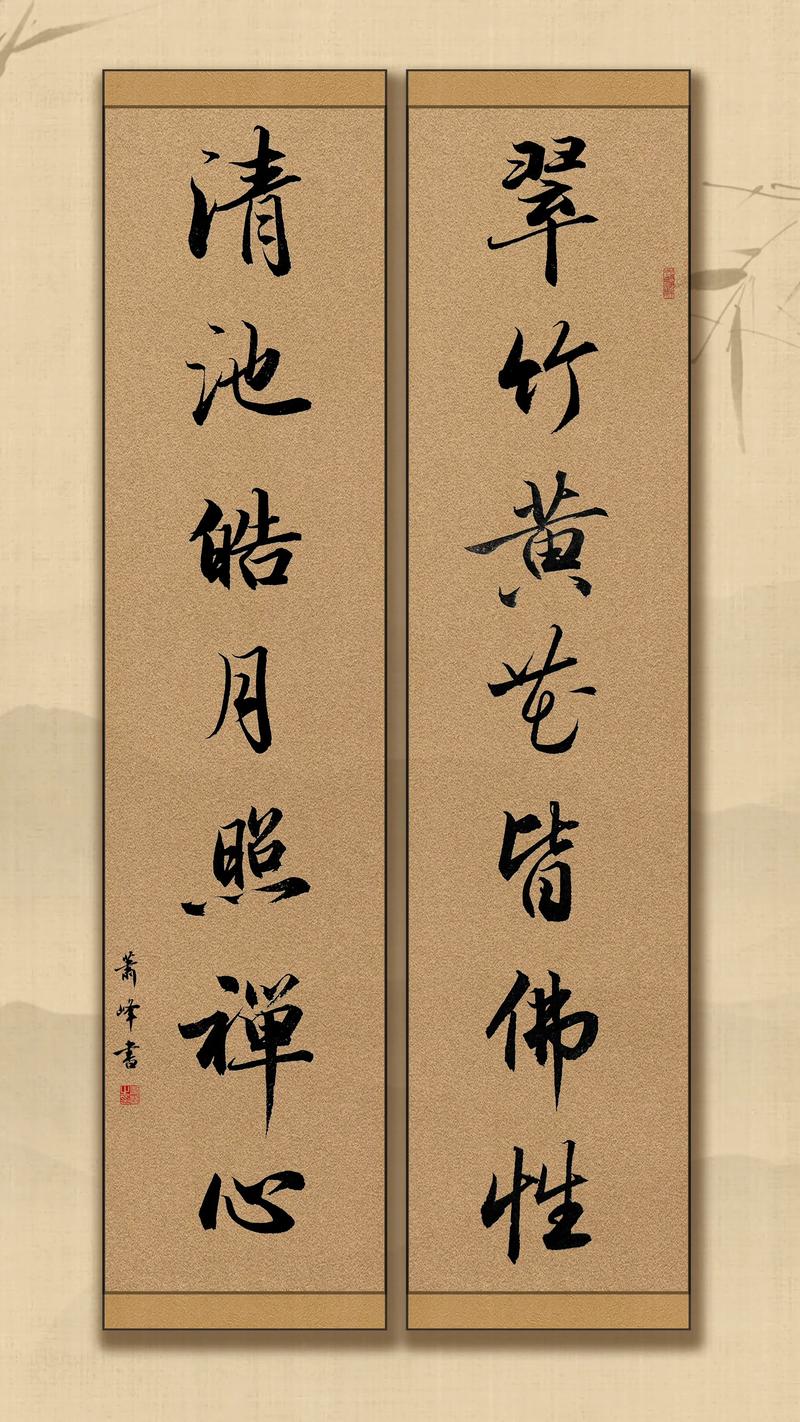 翠竹黄花皆佛性
清池皓月照禪心
蕭峰書